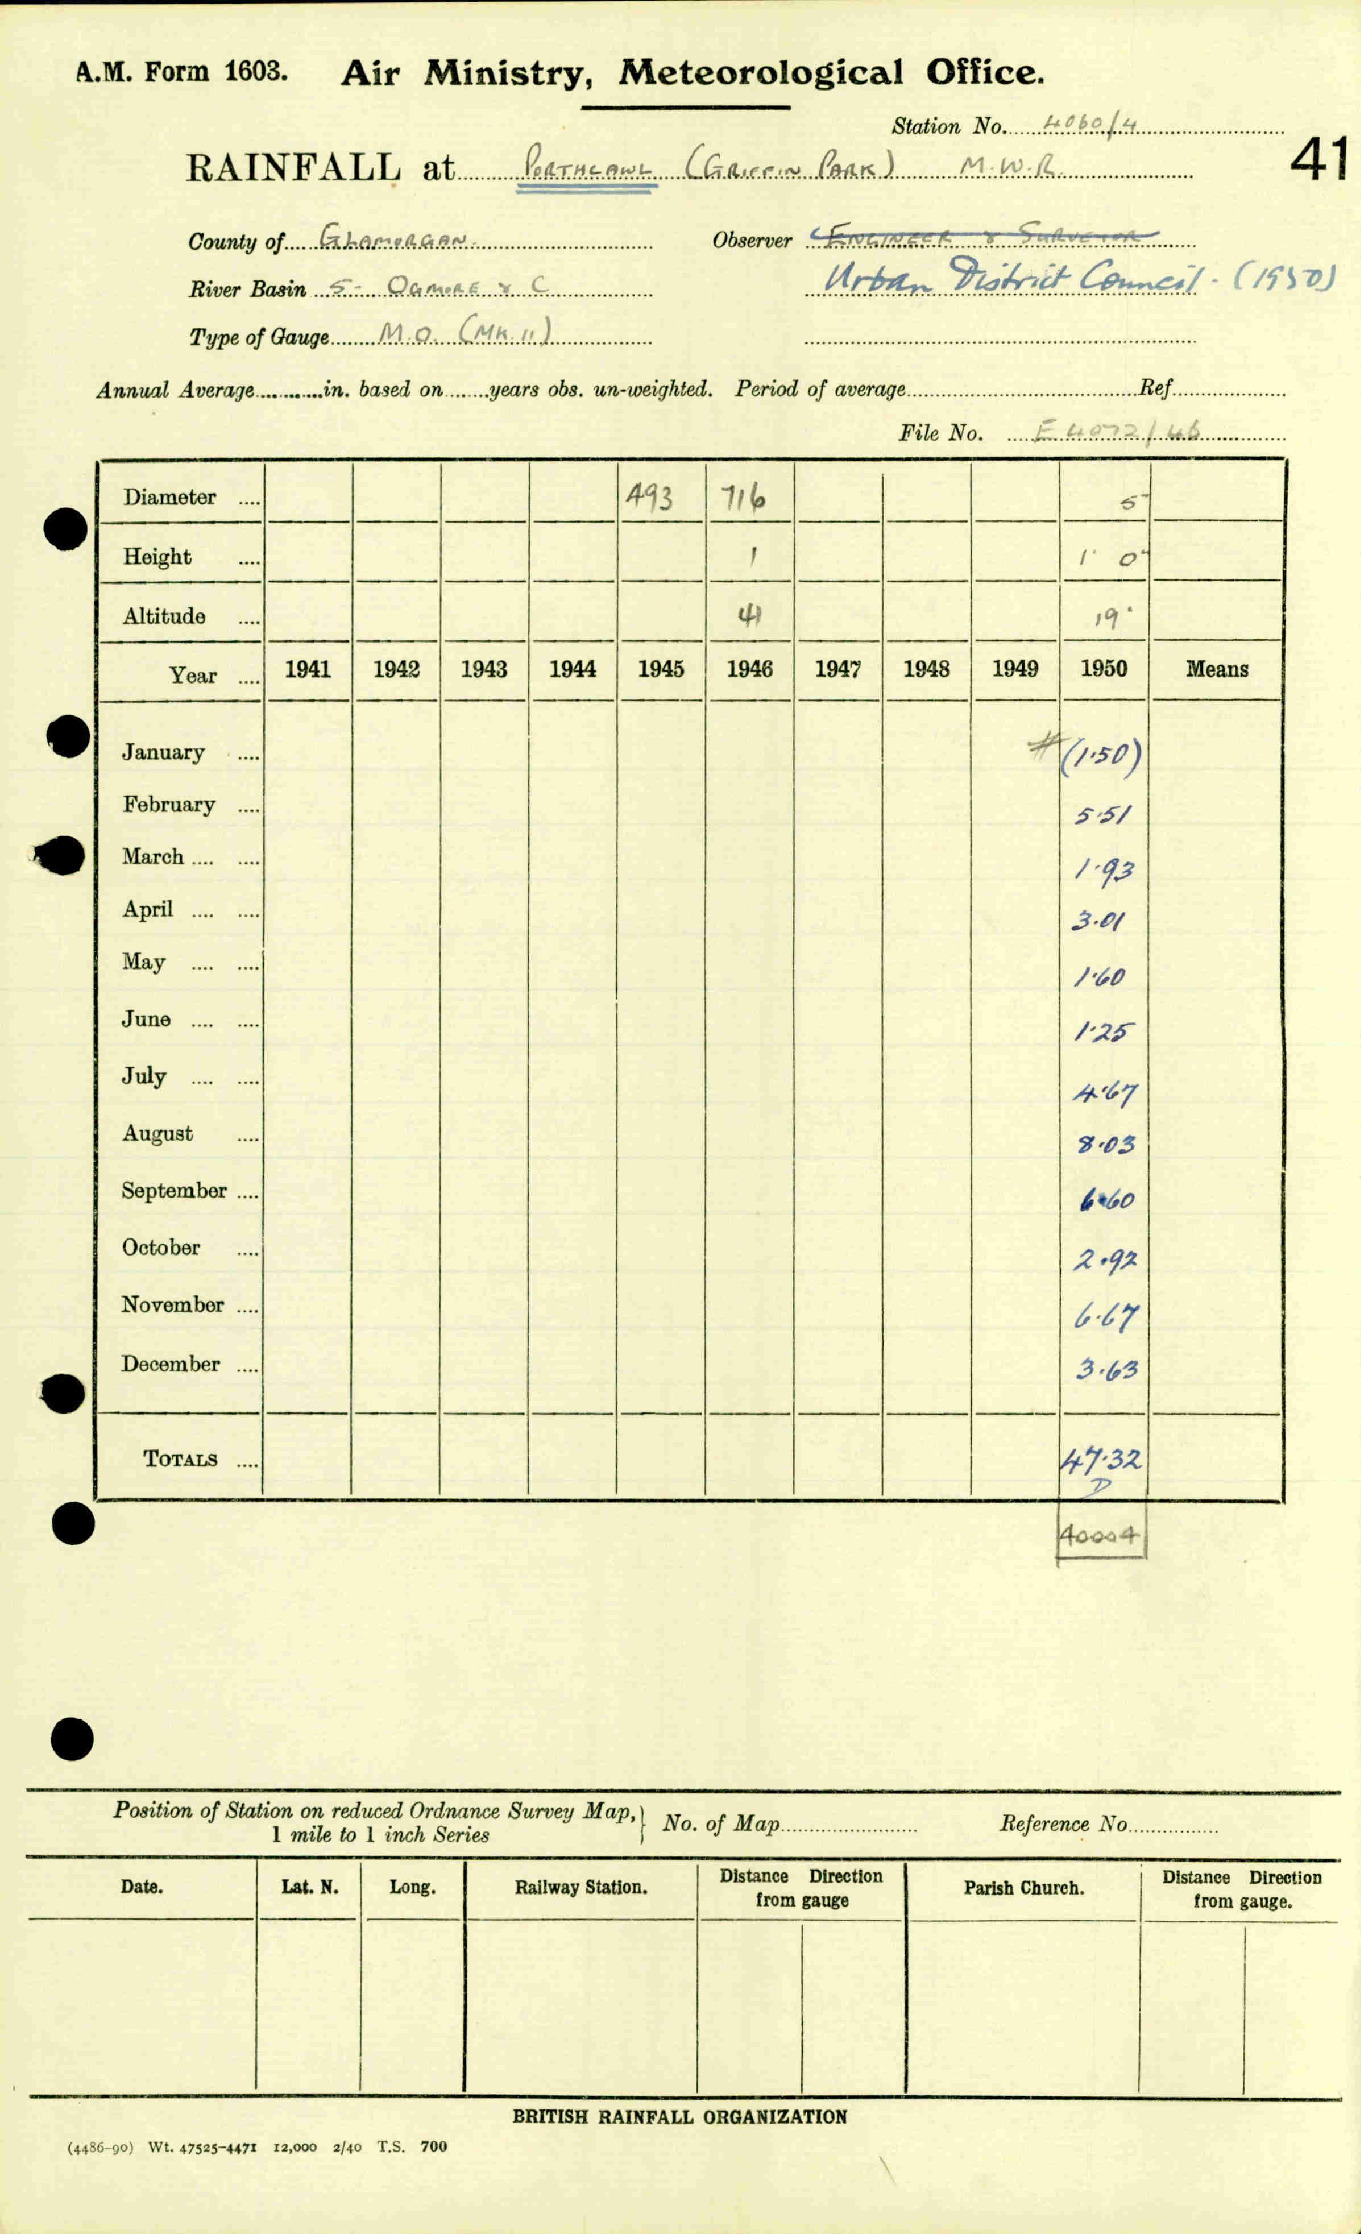 A.M. Form 1603. Air Ministry, Meteorological Office.
Station No. 4060/4
41
RAINFALL at PORTHCAWL (GRIFFIN PARK) M.W.R.
County of GLAMORGAN. Observer ENGINEER & SURVEYOR
River Basin 5- OGMORE & C Urban District Council. (1950)
Type of Gauge M.O. (MK.II)
Annual Average in. based on years obs. un-weighted. Period of average Ref
File No. E 4072/46
Diameter 493 716 5
Height 1 1' 0"
Altitude 19'
Year 1941 1942 1943 1944 1945 1946 1947 1948 1949 1950 Means
January # (1.50)
February 5.51
March 1.93
April 3.01
May 1.60
June 1.25
July 4.67
August 8.03
September 6.60
October 2.92
November 6.67
December 3.63
TOTALS 47.32
D
40004
Position of Station on reduced Ordnance Survey Map, } No. of Map Reference No
1 mile to 1 inch Series
Date. Lat. N. Long. Railway Station. Distance Direction from gauge Parish Church. Distance Direction from gauge.
BRITISH RAINFALL ORGANIZATION
(4486-90) Wt. 47525-4471 12,000 2/40 T.S. 700